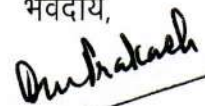 भवदीय,
Om Prakash